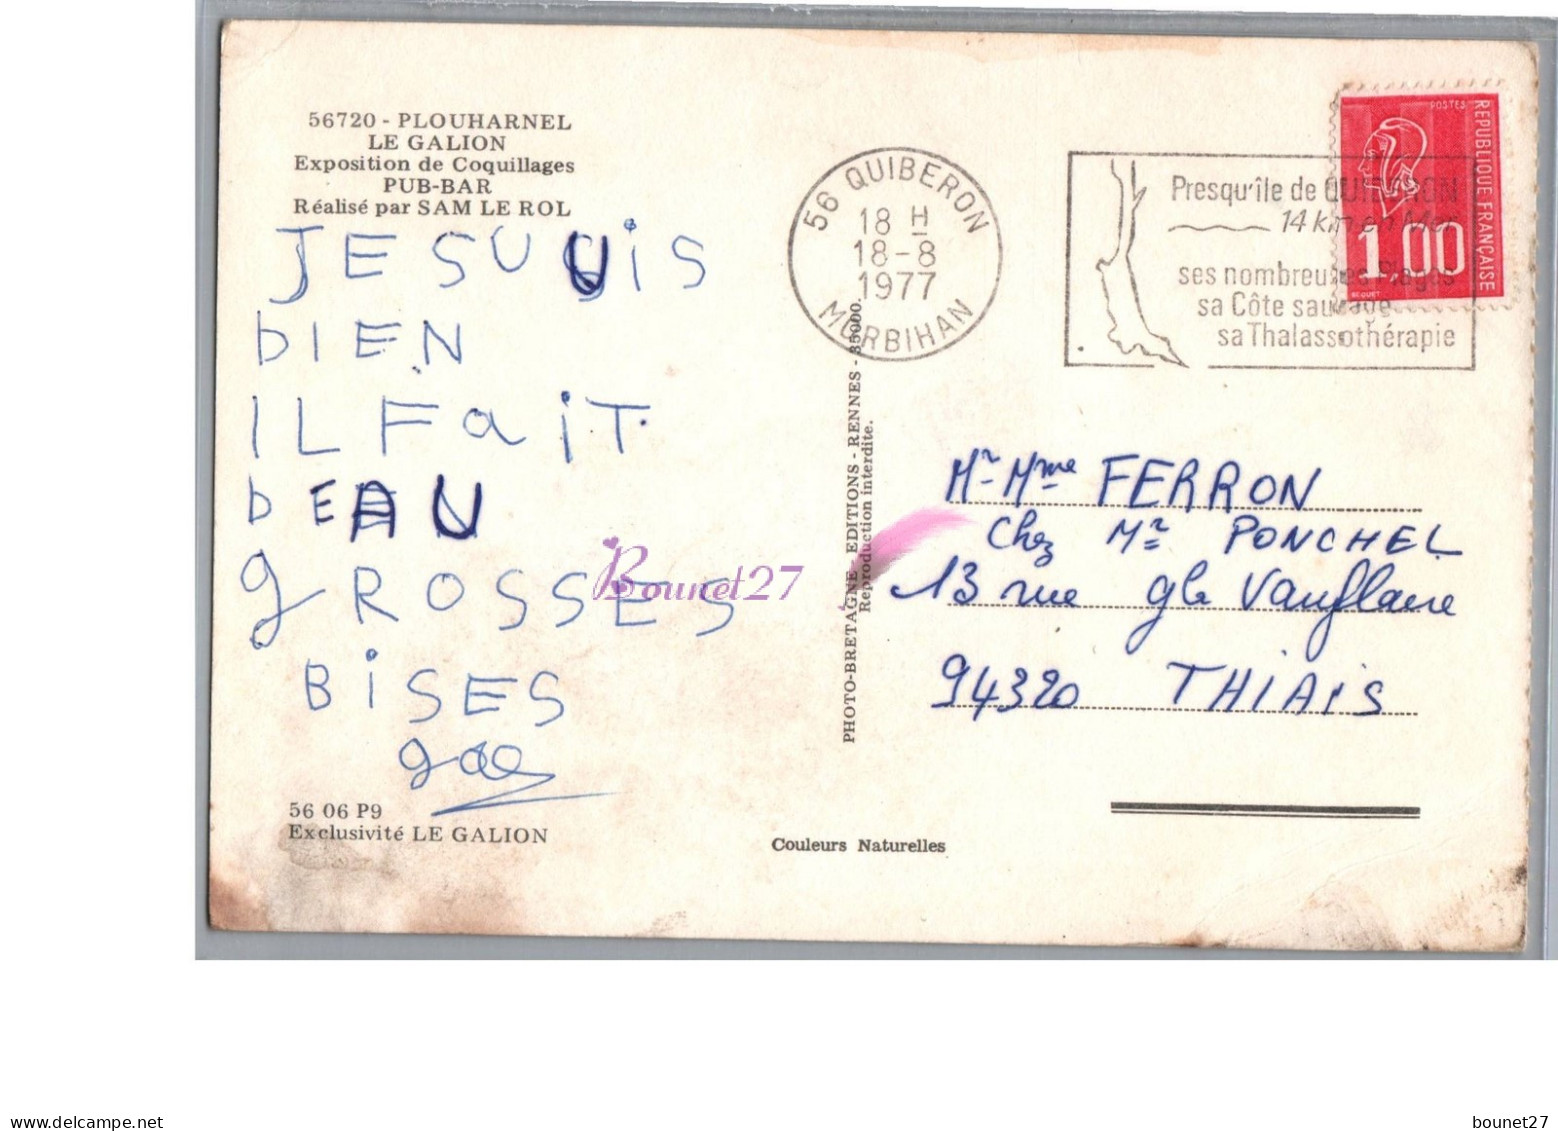 56720 - PLOUHARNEL
LE GALION
Exposition de Coquillages
PUB-BAR
Réalisé par SAM LE ROL
JE SUUIS
bIEN
IL FaiT
bEAU
gROSSES
BiSES
gae
56 06 P9
Exclusivité LE GALION
PHOTO-BRETAGNE EDITIONS - RENNES - 35000.
Reproduction interdite.
Couleurs Naturelles
56 QUIBERON
18 H
18-8
1977
MORBIHAN
Presqu'île de QUIBERON
14 km en Mer
ses nombreuses Plages
sa Côte sauvage
sa Thalassothérapie
POSTES
REPUBLIQUE FRANÇAISE
1,00
BEQUET
Mr Mme FERRON
Chez Mr PONCHEL
13 rue gle Vauflaire
94320 THIAIS
Bounet27
delcampe.net
bounet27